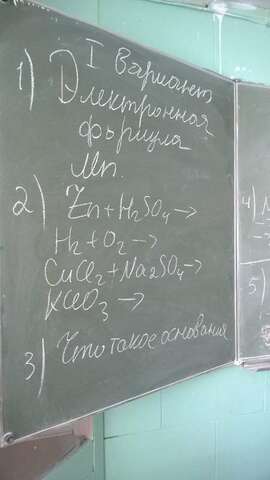 I Вариант
1) Электронная
формула
Mn.
2) Zn + H₂SO₄ →
H₂ + O₂ →
CuCl₂ + Na₂SO₄ →
KClO₃ →
3) Что такое основания
4)
5)